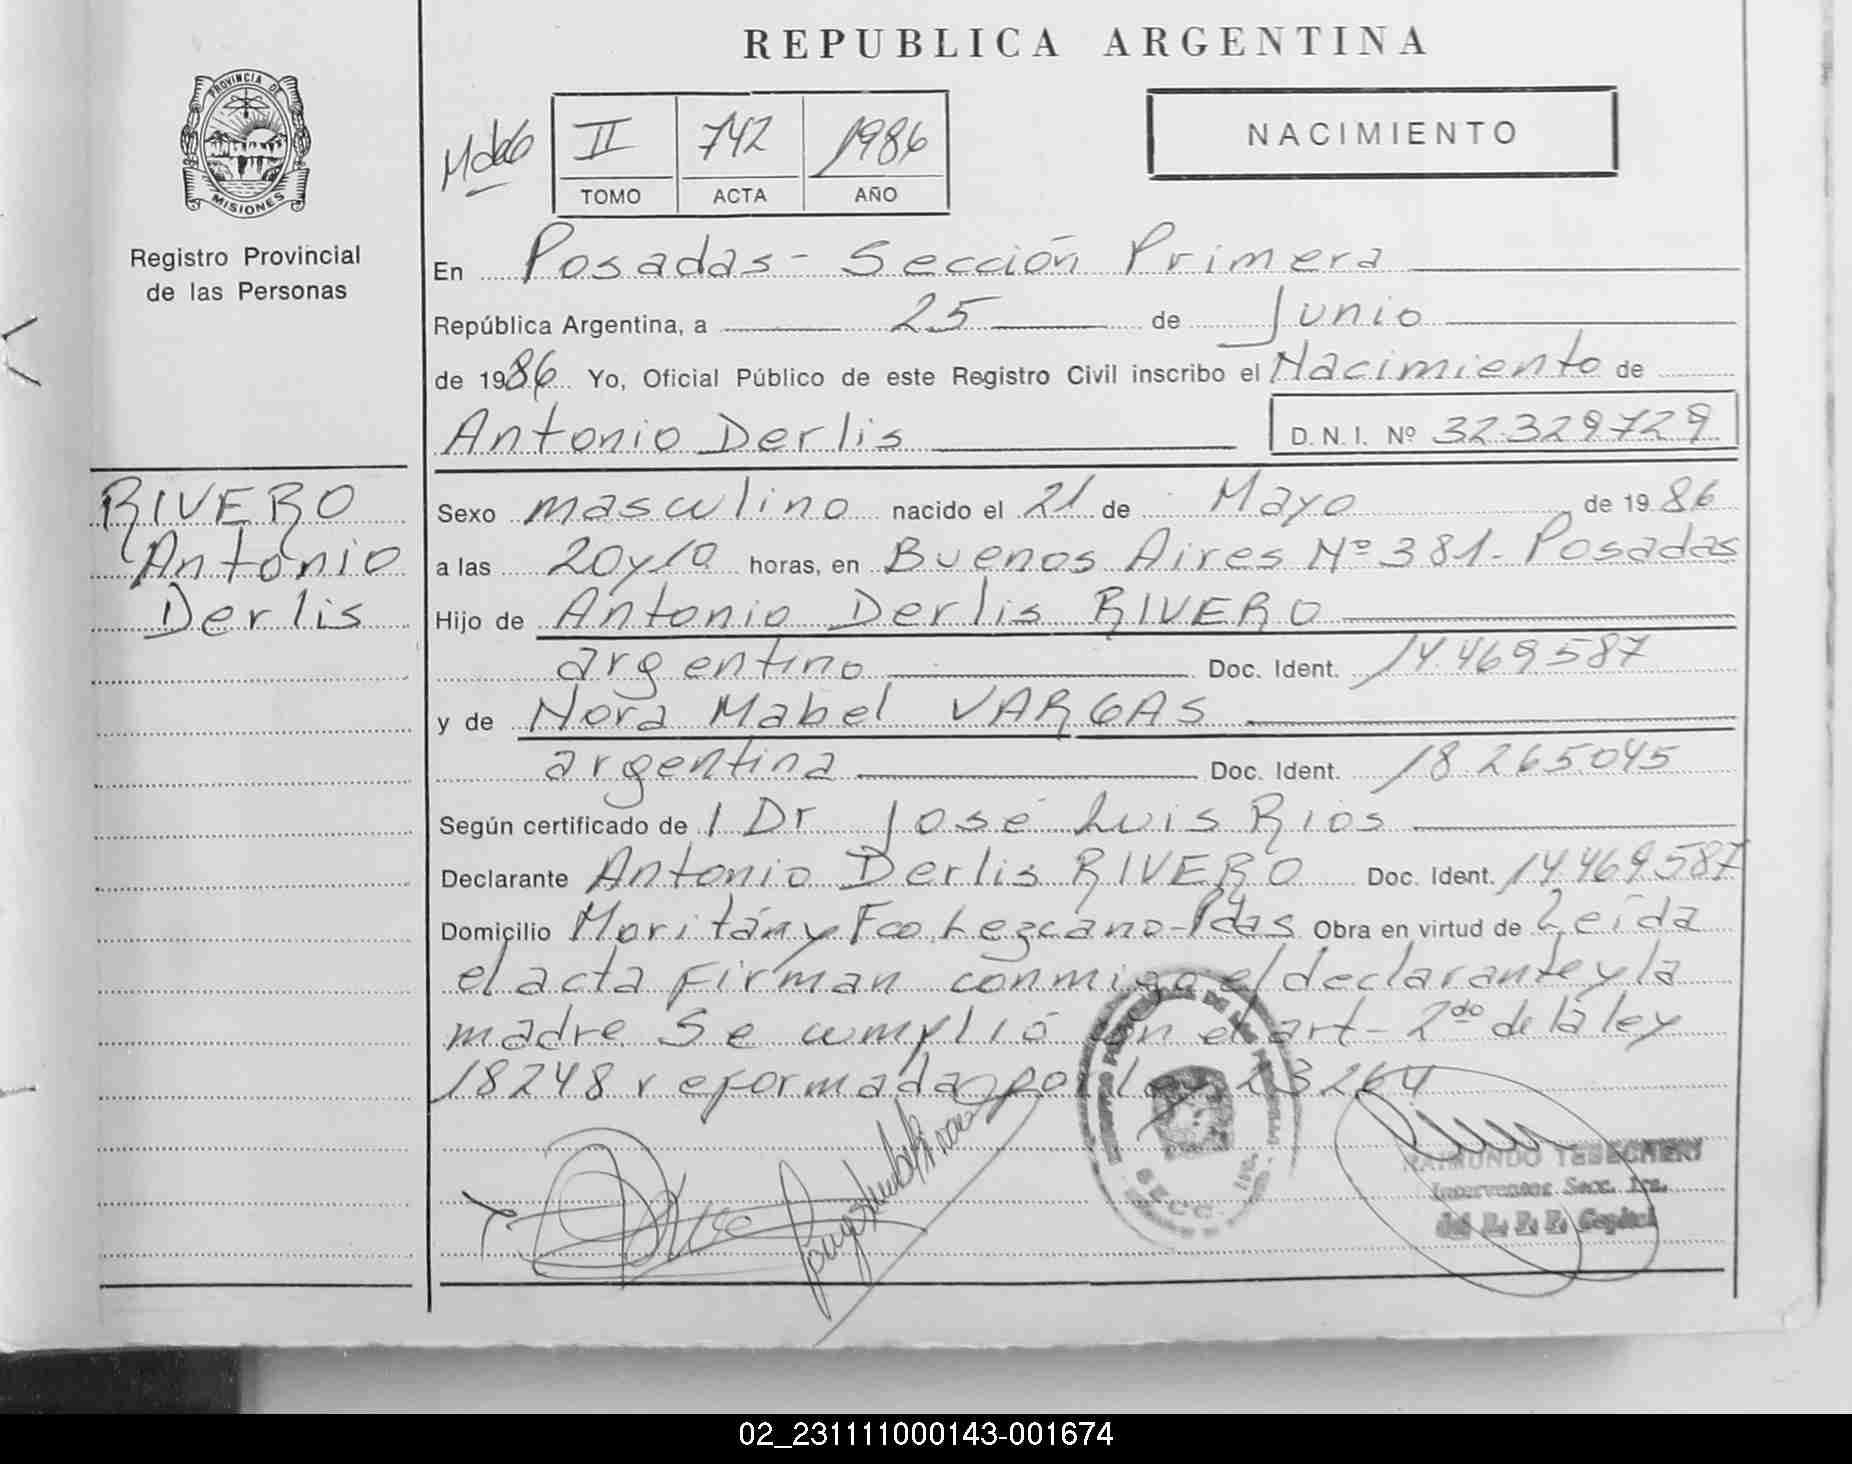 REPUBLICA ARGENTINA
PROVINCIA DE
MISIONES
Registro Provincial
de las Personas
II 742 1986
TOMO ACTA AÑO
NACIMIENTO
En Posadas - Sección Primera
República Argentina, a 25 de Junio
de 1986 Yo, Oficial Público de este Registro Civil inscribo el Nacimiento de
Antonio Derlis D. N. I. Nº 32.329.729
RIVERO
Antonio
Derlis
Sexo masculino nacido el 21 de Mayo de 1986
a las 20 y 10 horas, en Buenos Aires Nº 381- Posadas
Hijo de Antonio Derlis RIVERO
argentino Doc. Ident. 14.469.587
y de Nora Mabel VARGAS
argentina Doc. Ident. 18.265.045
Según certificado de l Dr José Luis Rios
Declarante Antonio Derlis RIVERO Doc. Ident. 14.469.587
Domicilio Moritán y Fco. Lezcano - Pdas Obra en virtud de Leída
el acta firman conmigo el declarante y la
madre Se cumplió con el art - 2do de la ley
18248 reformada por ley 23264
SECC. 1ra.
RAIMUNDO
Interventor Secc. 1ra.
del R. P. P. Capital
02_231111000143-001674